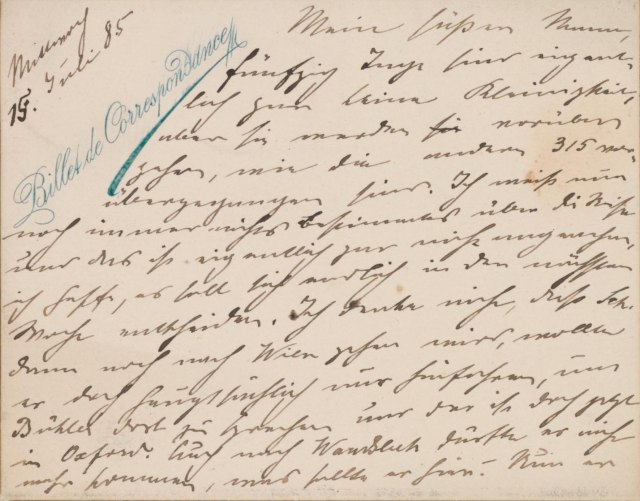 Mittwoch
15. Juli 85
Billet de Correspondance
Mein süßer Mann,
fünfzig Tage sind eigent-
lich gar keine Kleinigkeit,
aber sie werden sie vorüber-
gehen, wie die andern 315 vor-
übergegangen sind. Ich weiß nun
noch immer nichts bestimmtes über die Reise
und das ist eigentlich gar nicht angenehm,
ich hoffe, es soll sich endlich in der nächsten
Woche entscheiden. Ich denke nicht, daß
dann noch nach Wien gehen wird, wollte
er doch hauptsächlich nur hinfahren, um
Bühler dort zu sprechen und der ist doch jetzt
in Oxford. Auch nach Wandsbek dürfte er nicht
mehr kommen, was sollte er hier? Nun er